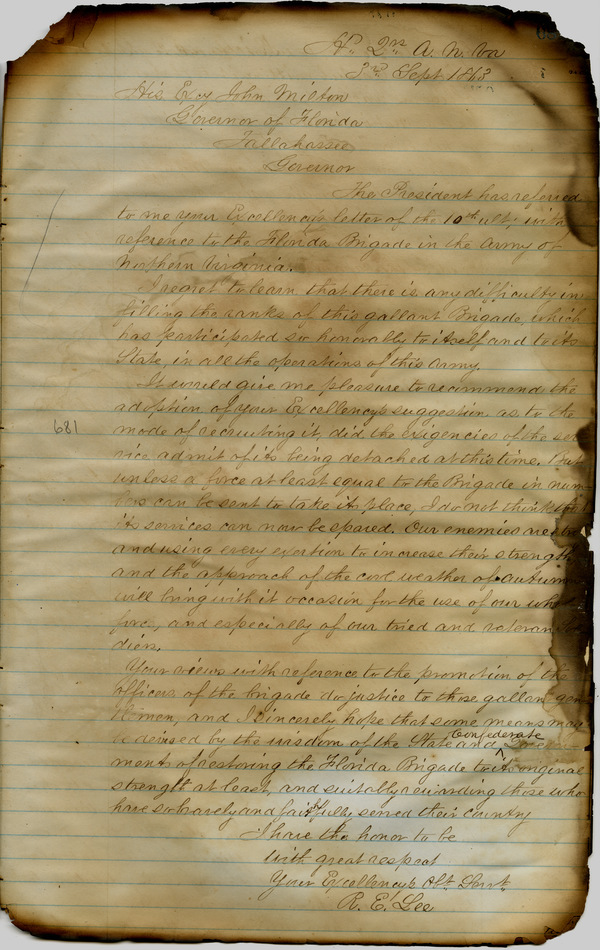 Hd. Qrs A. N. Va
3rd Sept 1863
His Excy John Milton
Governor of Florida
Tallahassee
Governor
The President has referred
to me your Excellency's letter of the 10th ult; with
reference to the Florida Brigade in the Army of
Northern Virginia.
I regret to learn that there is any difficulty in
filling the ranks of this gallant Brigade, which
has participated so honorably to itself and to its
State, in all the operations of this Army.
It would give me pleasure to recommend the
adoption of your Excellency's suggestion as to the
mode of recruiting it, did the exigencies of the ser
681
vice admit of its being detached at this time. But
unless a force at least equal to the Brigade in num
bers can be sent to take its place, I do not think that
its services can now be spared. Our enemies are
and using every exertion to increase their strength
and the approach of the cool weather of autumn
will bring with it occasion for the use of our whole
force, and especially of our tried and veteran
diers.
Your views with reference to the promotion of the
officers of the brigade do justice to those gallant gen
tlemen, and I sincerely hope that some means may
be devised by the wisdom of the State and Confederate
ments of restoring the Florida Brigade to its original
strength at least, and suitably rewarding those who
have so bravely and faithfully served their country
I have the honor to be
with great respect
Your Excellency's Obt. Servt.
R. E. Lee